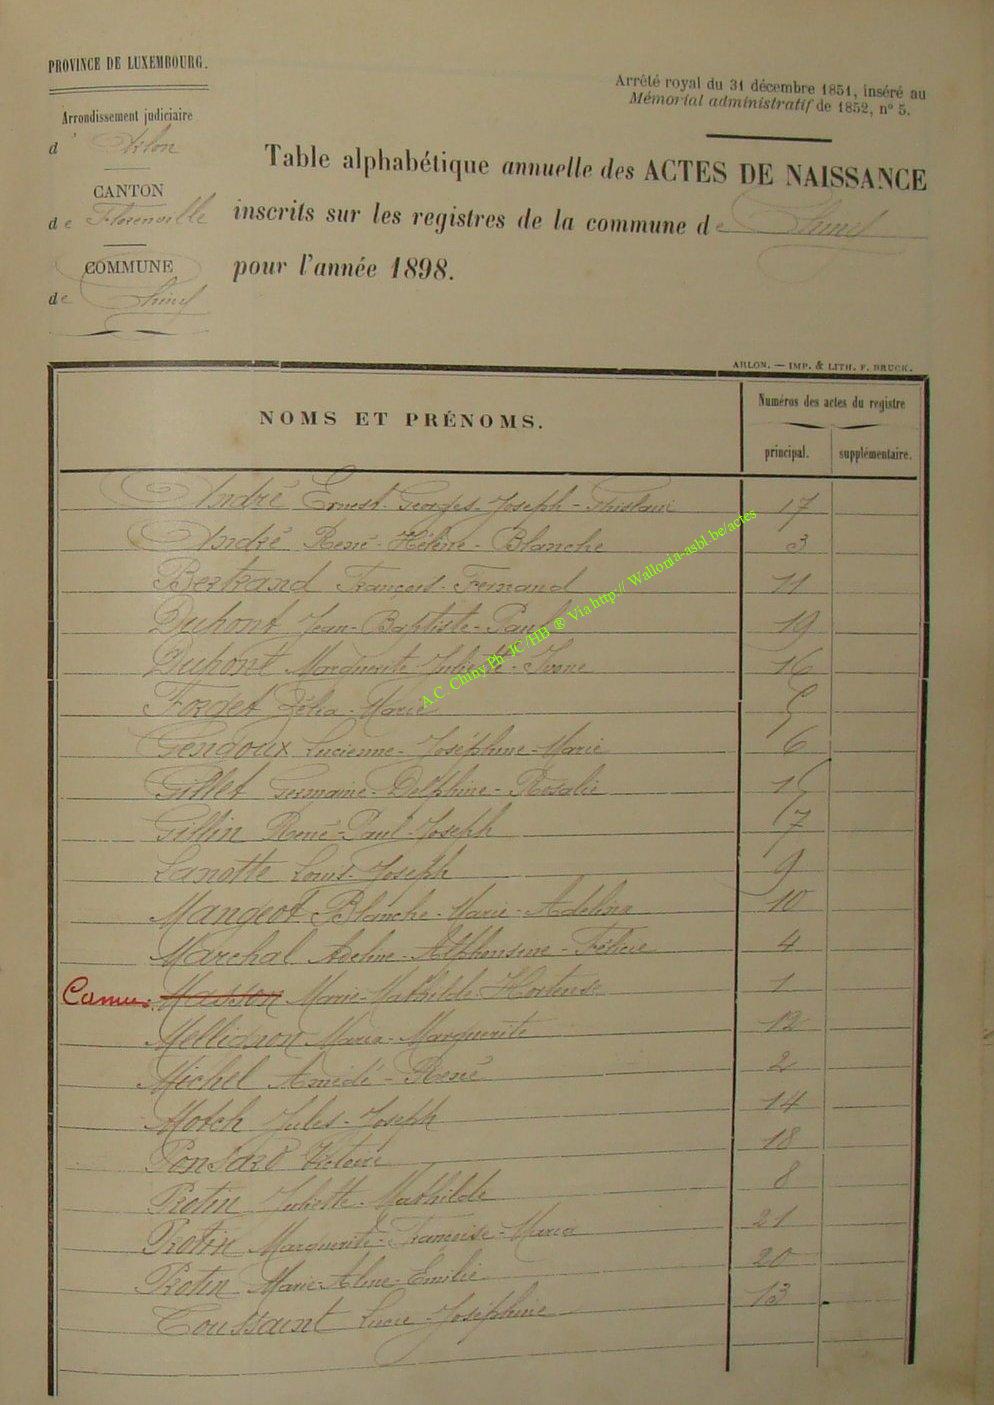 PROVINCE DE LUXEMBOURG.
Arrêté royal du 31 décembre 1851, inséré au
Mémorial administratif de 1852, n° 5.
Arrondissement judiciaire
d' Arlon
CANTON
de Florenville
COMMUNE
de Chiny
Table alphabétique annuelle des ACTES DE NAISSANCE
inscrits sur les registres de la commune de Chiny
pour l'année 1898.
ARLON. — IMP. & LITH. F. BRUCK.
NOMS ET PRÉNOMS.
Numéros des actes du registre
principal. supplémentaire.
André Ernest-Georges-Joseph-Ghislain 17
André René-Hélène-Blanche 3
Bertrand François-Fernand 11
Dupont Jean-Baptiste-Paul 19
Dupont Marguerite-Juliette-Ivone 16
Forget Zélia-Marie 5
Gendoux Lucienne-Joséphine-Marie 6
Gillet Germaine-Delphine-Rosalie 15
Gillin René-Paul-Joseph 7
Lanotte Louis-Joseph 9
Mangeot Blanche-Marie-Adelina 10
Marchal Adeline-Alphonsine-Félicie 4
Camus Masson Marie-Mathilde-Hortense 1
Maria-Marguerite 12
Michel Amédé-René 2
Motch Jules-Joseph 14
Ponsard Victoire 18
Protin Juliette-Mathilde 8
Protin Marguerite-Françoise-Maria 21
Protin Marie-Aline-Emilie 20
Toussaint Lucie-Joséphine 13
A.C. Chiny Ph. JC/HB ® Via http:// Wallonia-asbl.be/actes